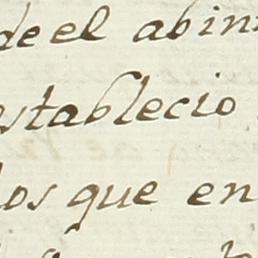 de el abin
establecio
los que en